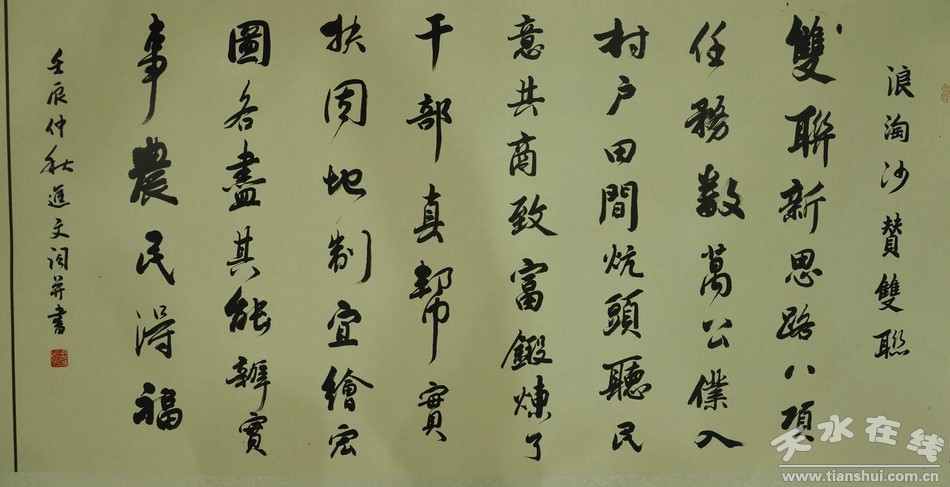 浪淘沙 贊雙聯
雙聯新思路八項
任務數萬公僕入
村戶田間炕頭聽民
意共商致富鍛煉了
干部真幫實
扶因地制宜繪宏
圖各盡其能辦實
事農民得福
壬辰仲秋進文詞并書
天水在线
www.tianshui.com.cn